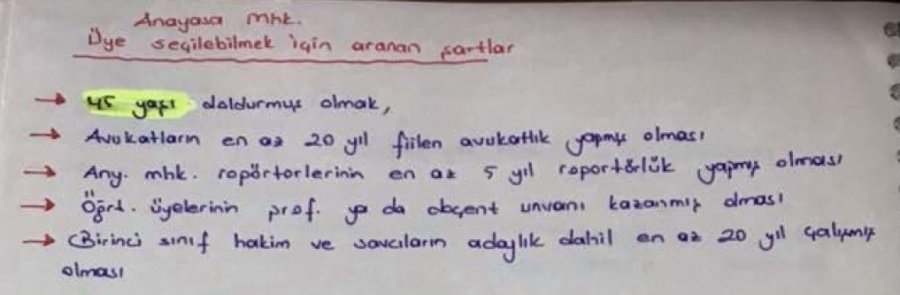 Anayasa mhk.
Üye seçilebilmek için aranan şartlar
→ 45 yaşı doldurmuş olmak,
→ Avukatların en az 20 yıl fiilen avukatlık yapmış olması
→ Any. mhk. ropörtorlerinin en az 5 yıl roportörlük yapmış olması
→ Öğrt. üyelerinin prof. ya da doçent unvanı kazanmış olması
→ Birinci sınıf hakim ve savcıların adaylık dahil en az 20 yıl çalışmış
olması